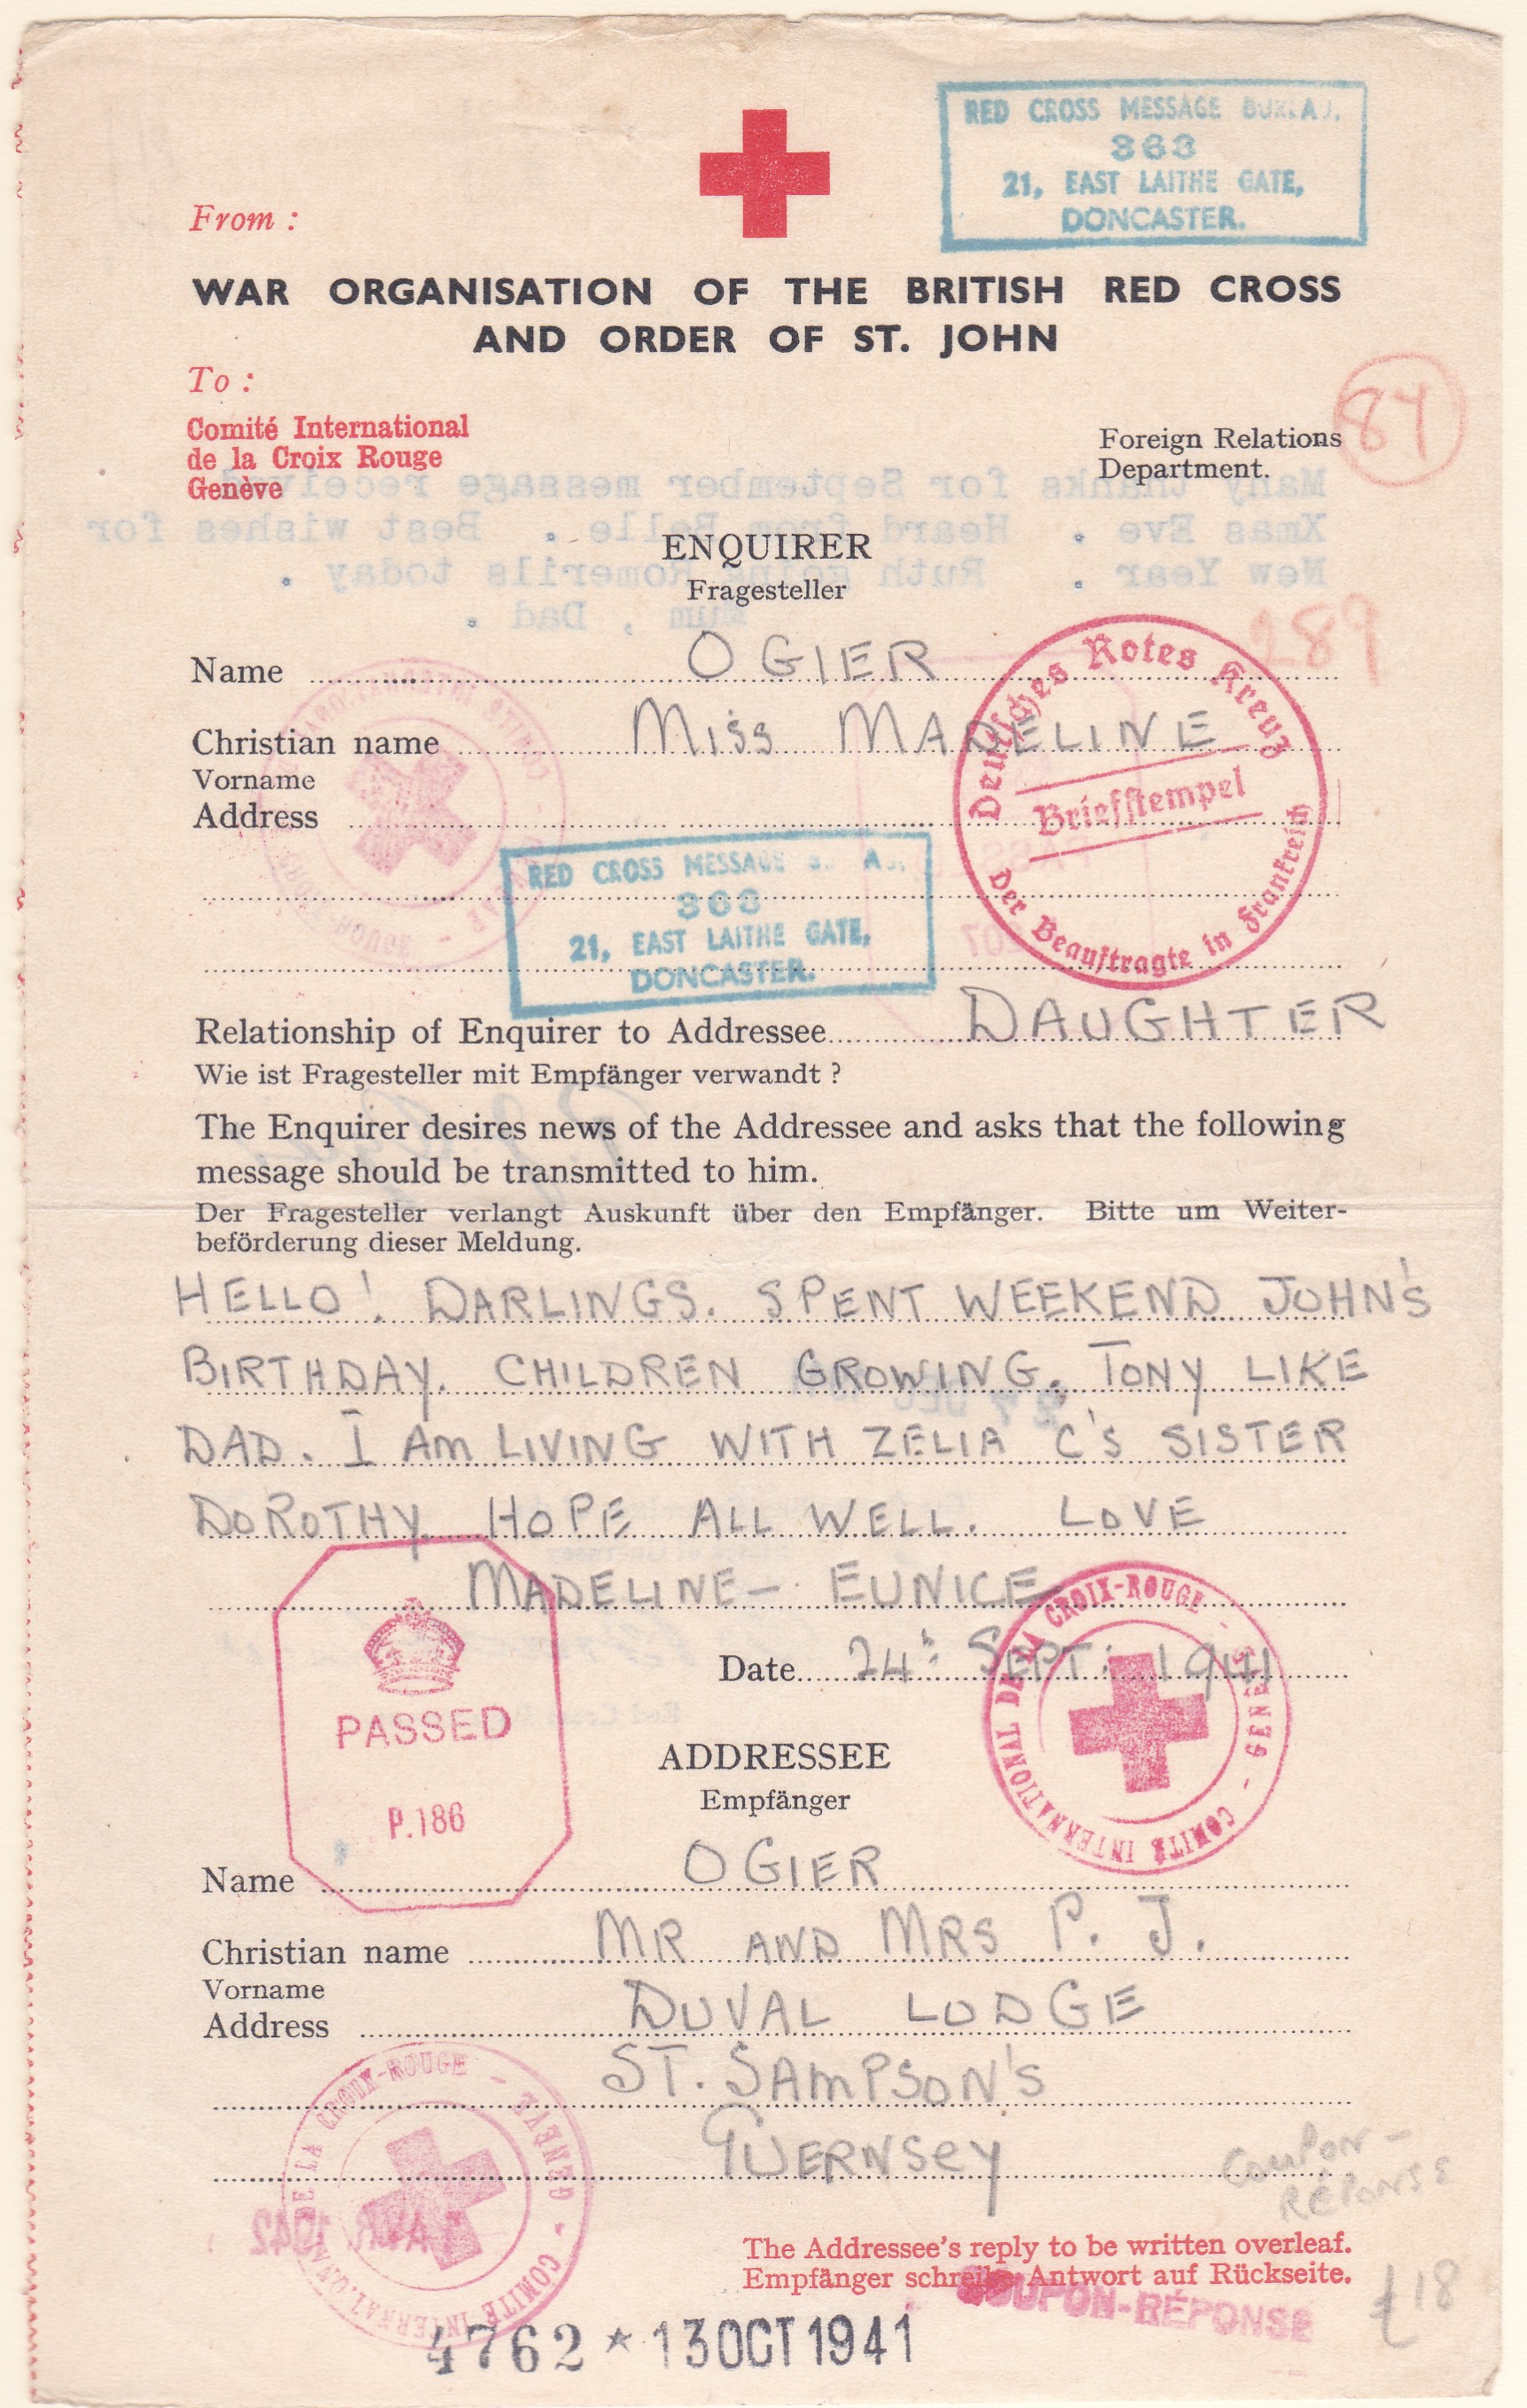 RED CROSS MESSAGE
363
21, EAST LAITHE GATE,
DONCASTER.
From :
WAR ORGANISATION OF THE BRITISH RED CROSS
AND ORDER OF ST. JOHN
To :
Comité International
de la Croix Rouge
Genève
Foreign Relations
Department.
87
Many thanks for September message received
Xmas Eve . Heard from Belle . Best wishes for
New Year . Ruth today .
Mum , Dad .
ENQUIRER
Fragesteller
289
Name OGIER
Christian name MISS MADELINE
Vorname
Address
Deutsches Rotes Kreuz
Briefstempel
Der Beauftragte in Frankreich
RED CROSS MESSAGE
363
21, EAST LAITHE GATE,
DONCASTER.
Relationship of Enquirer to Addressee DAUGHTER
Wie ist Fragesteller mit Empfänger verwandt ?
The Enquirer desires news of the Addressee and asks that the following
message should be transmitted to him.
Der Fragesteller verlangt Auskunft über den Empfänger. Bitte um Weiter-
beförderung dieser Meldung.
HELLO! DARLINGS. SPENT WEEKEND JOHN'S
BIRTHDAY. CHILDREN GROWING. TONY LIKE
DAD. I AM LIVING WITH ZELIA C'S SISTER
DOROTHY HOPE ALL WELL. LOVE
MADELINE – EUNICE
Date 24th SEPT: 1941
PASSED
P.186
COMITÉ INTERNATIONAL DE LA CROIX-ROUGE - GENÈVE -
ADDRESSEE
Empfänger
Name OGIER
Christian name MR AND MRS P. J.
Vorname
Address DUVAL LODGE
ST. SAMPSON'S
GUERNSEY
COMITÉ INTERNATIONAL DE LA CROIX-ROUGE - GENÈVE -
1942
COUPON-
RÉPONSE
The Addressee's reply to be written overleaf.
Empfänger schreibe Antwort auf Rückseite.
COUPON-RÉPONSE
£18
4762 * 13 OCT 1941